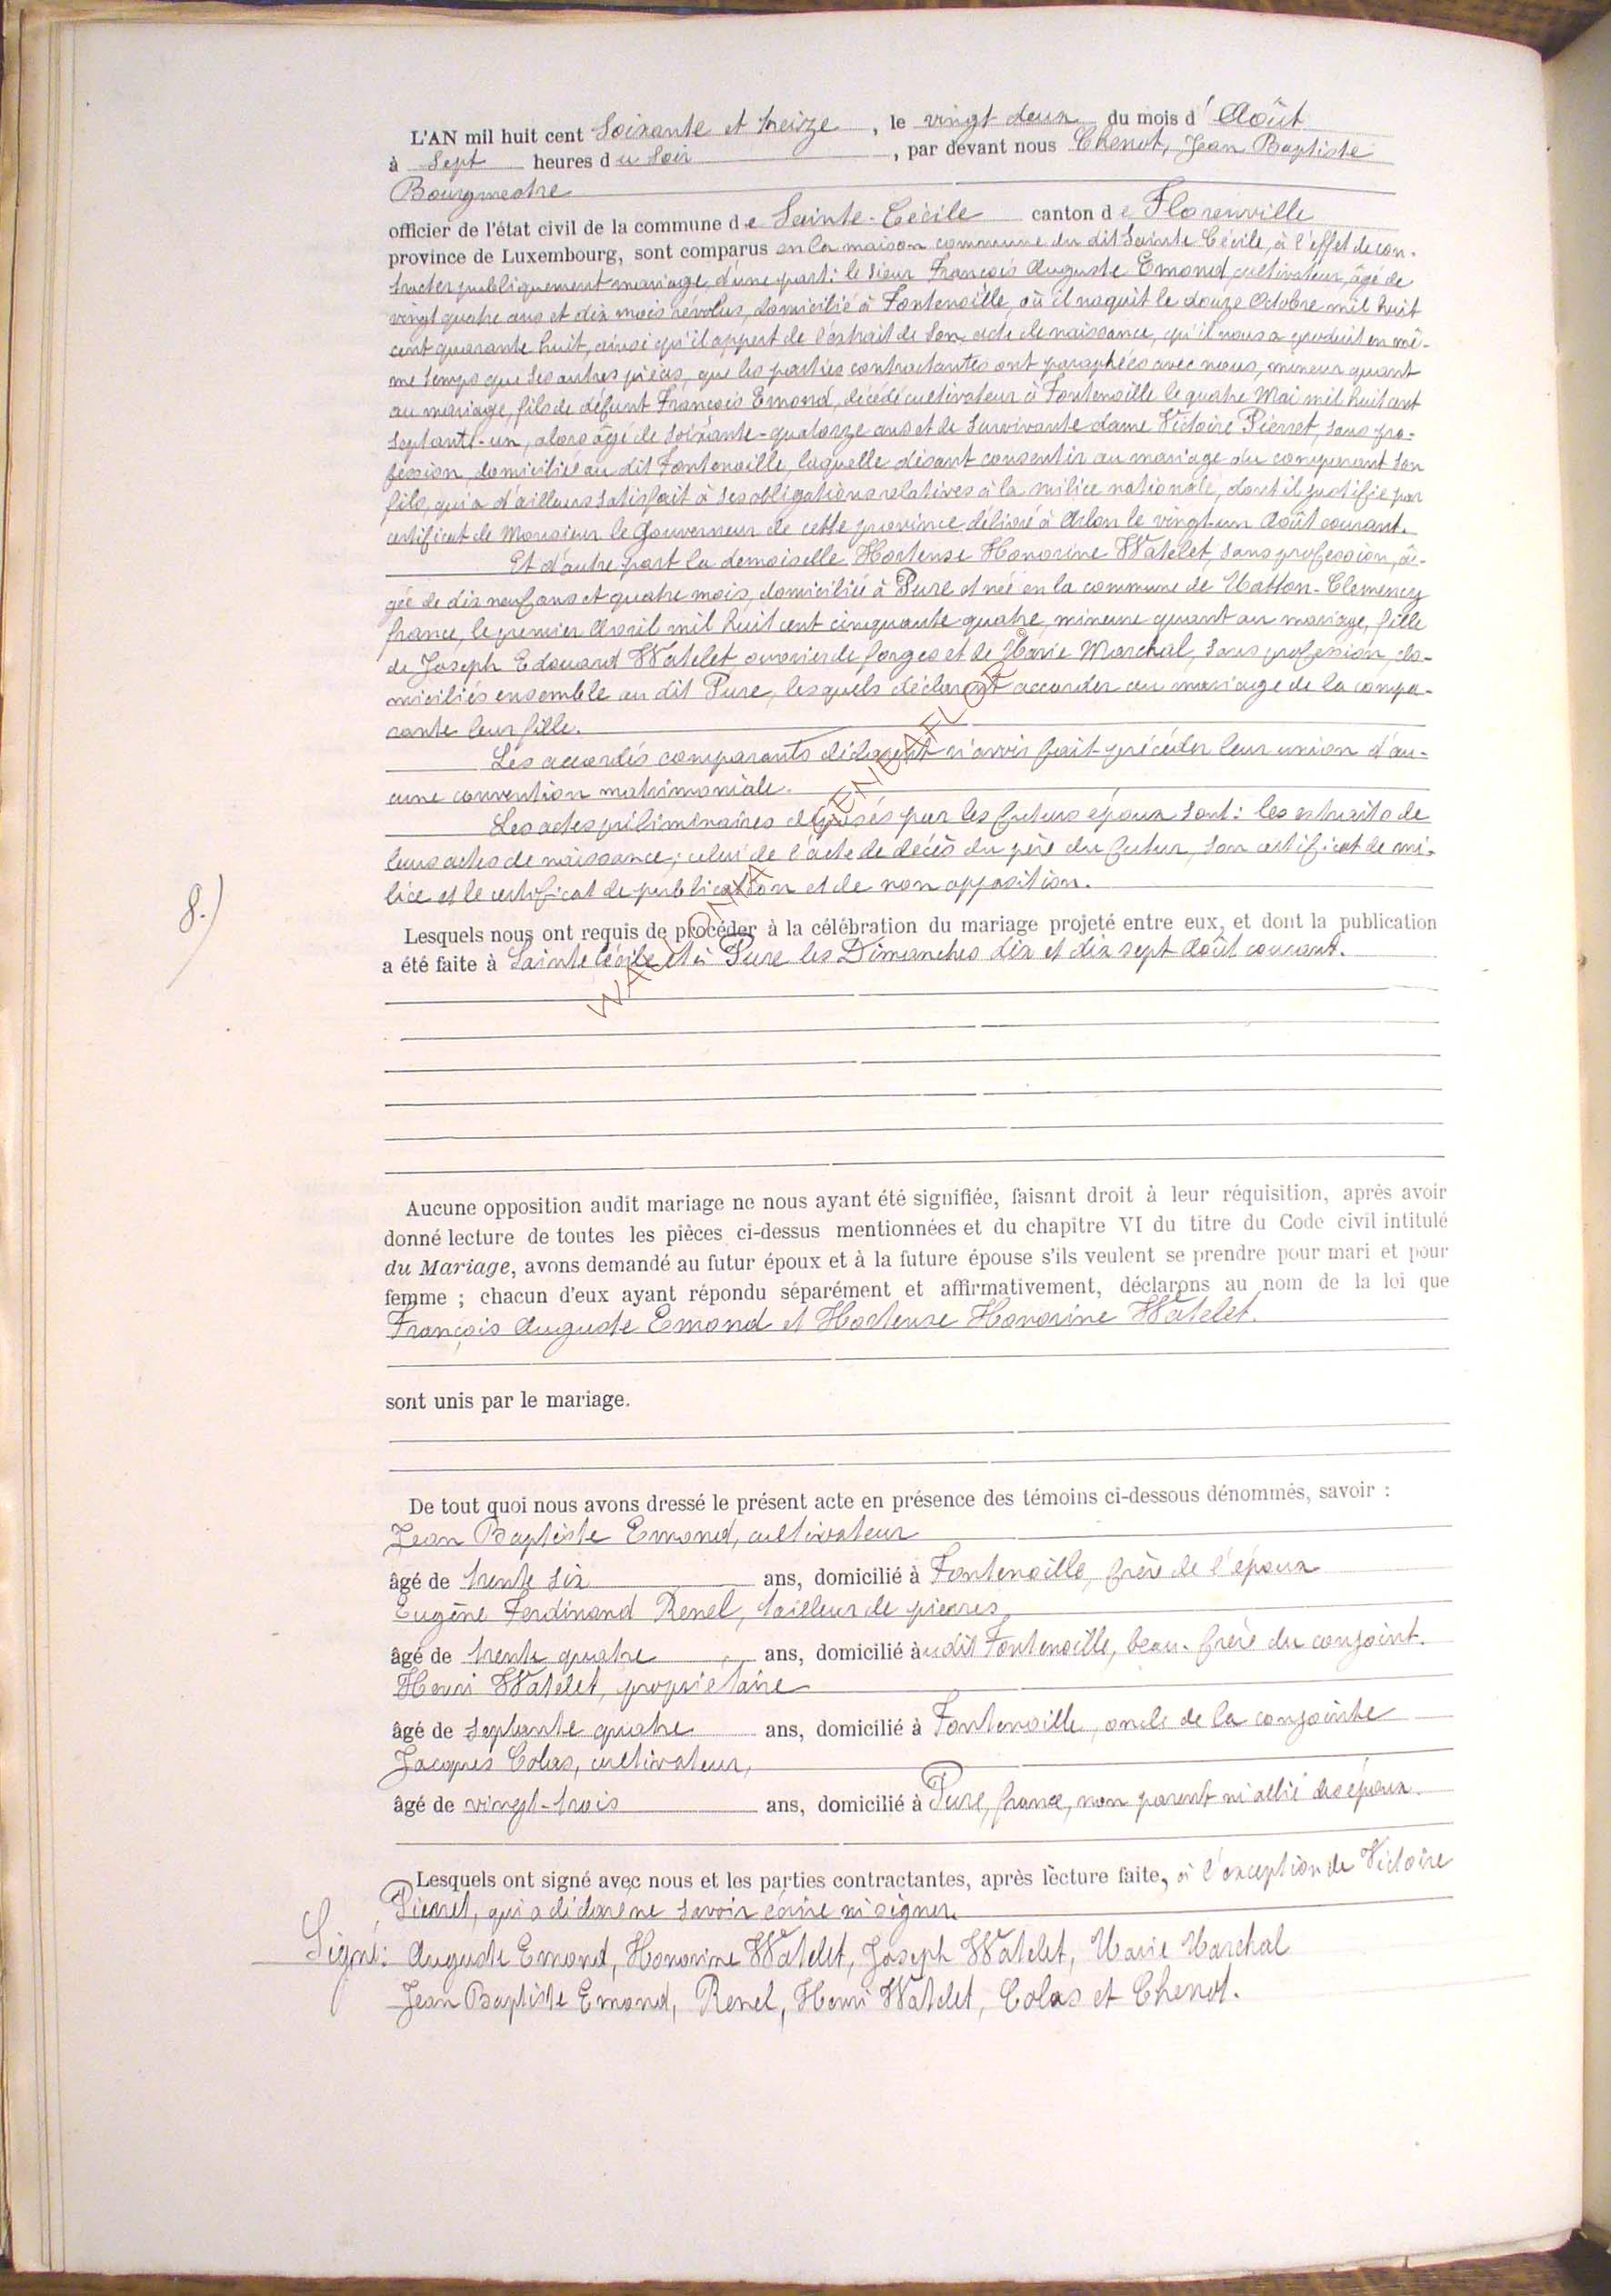 L'AN mil huit cent Soixante et treize, le vingt deux du mois d'Août
à Sept heures du Soir, par devant nous Chenot, Jean Baptiste
Bourgmestre
officier de l'état civil de la commune de Sainte-Cécile canton de Florenville
province de Luxembourg, sont comparus en la maison commune du dit Sainte Cécile, à l'effet de con-
tracter publiquement mariage d'une part: le sieur François Auguste Emond, cultivateur, âgé de
vingt quatre ans et dix mois révolus, domicilié à Fontenoille, où il naquit le douze Octobre mil huit
cent quarante huit, ainsi qu'il appert de l'extrait de son acte de naissance, qu'il nous a produit en mê-
me temps que ses autres pièces, que les parties contractantes ont paraphées avec nous, mineur quant
au mariage, fils de défunt François Emond, décédé cultivateur à Fontenoille le quatre Mai mil huit cent
septante-un, alors âgé de soixante-quatorze ans et de survivante dame Victoire Pierret, sans pro-
fession, domiciliée au dit Fontenoille, laquelle disant consentir au mariage du comparant son
fils, qui a d'ailleurs satisfait à ses obligations relatives à la milice nationale, dont il justifie par
certificat de Monsieur le Gouverneur de cette province délivré à Arlon le vingt-un Août courant.
Et d'autre part la demoiselle Hortense Honorine Watelet, sans profession, â-
gée de dix neuf ans et quatre mois, domiciliée à Pure et née en la commune de Matton-Clemency
france, le premier Avril mil huit cent cinquante quatre, mineure quant au mariage, fille
de Joseph Edouard Watelet ouvrier de forges et de Marie Marchal, sans profession, do-
miciliés ensemble au dit Pure, lesquels déclarent accorder au mariage de la compa-
rante leur fille.
Les accordés comparants déclarent n'avoir fait précéder leur union d'au-
cune convention matrimoniale.
Les actes préliminaires déposés par les futurs époux sont: les extraits de
leurs actes de naissance; celui de l'acte de décès du père du futur, son certificat de mi-
lice et le certificat de publication et de non opposition.
8.)
Lesquels nous ont requis de procéder à la célébration du mariage projeté entre eux, et dont la publication
a été faite à Sainte Cécile et à Pure les Dimanches dix et dix sept Août courant.
WALLONIA © GENEAFLOR
Aucune opposition audit mariage ne nous ayant été signifiée, faisant droit à leur réquisition, après avoir
donné lecture de toutes les pièces ci-dessus mentionnées et du chapitre VI du titre du Code civil intitulé
du Mariage, avons demandé au futur époux et à la future épouse s'ils veulent se prendre pour mari et pour
femme ; chacun d'eux ayant répondu séparément et affirmativement, déclarons au nom de la loi que
François Auguste Emond et Hortense Honorine Watelet.
sont unis par le mariage.
De tout quoi nous avons dressé le présent acte en présence des témoins ci-dessous dénommés, savoir :
Jean Baptiste Emond, cultivateur
âgé de trente six ans, domicilié à Fontenoille, frère de l'époux
Eugène Ferdinand Renel, tailleur de pierres,
âgé de trente quatre ans, domicilié audit Fontenoille, beau-frère du conjoint.
Henri Watelet, propriétaire
âgé de septante quatre ans, domicilié à Fontenoille, oncle de la conjointe
Jacques Colas, cultivateur,
âgé de vingt-trois ans, domicilié à Pure, france, non parent ni allié des époux.
Lesquels ont signé avec nous et les parties contractantes, après lecture faite, à l'exception de Victoire
Pierret, qui a déclaré ne savoir écrire ni signer.
Signé: Auguste Emond, Honorine Watelet, Joseph Watelet, Marie Marchal
Jean Baptiste Emond, Renel, Henri Watelet, Colas et Chenot.